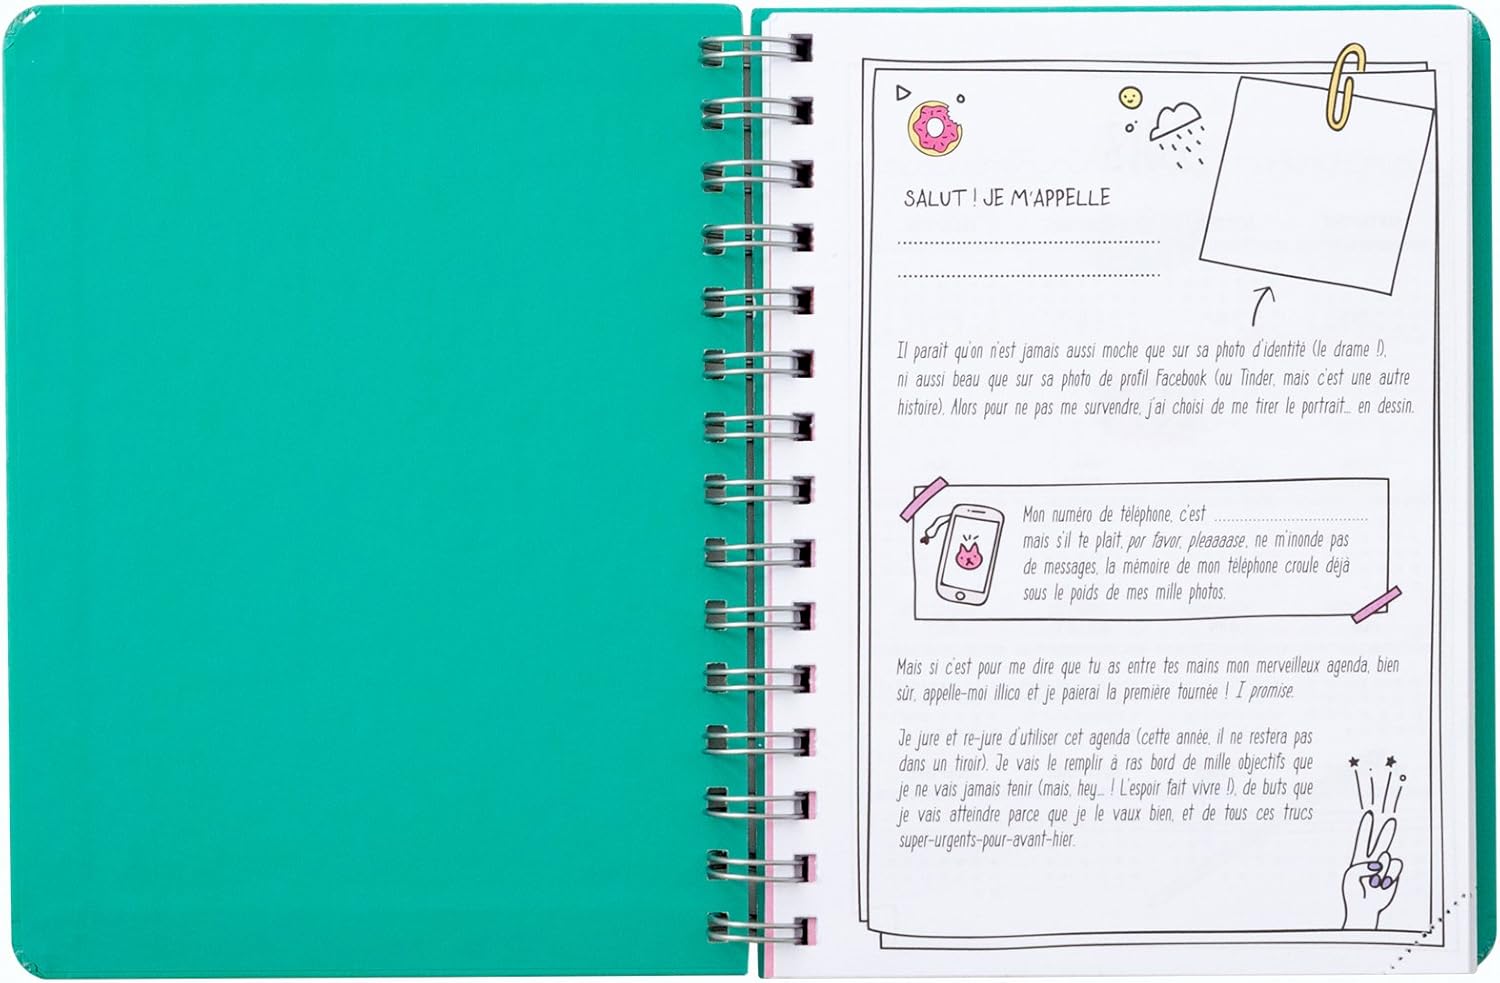 SALUT ! JE M'APPELLE
Il paraît qu'on n'est jamais aussi moche que sur sa photo d'identité (le drame !),
ni aussi beau que sur sa photo de profil Facebook (ou Tinder, mais c'est une autre
histoire). Alors pour ne pas me survendre, j'ai choisi de me tirer le portrait... en dessin.
Mon numéro de téléphone, c'est ........................................
mais s'il te plaît, por favor, pleaaaase, ne m'inonde pas
de messages, la mémoire de mon téléphone croule déjà
sous le poids de mes mille photos.
Mais si c'est pour me dire que tu as entre tes mains mon merveilleux agenda, bien
sûr, appelle-moi illico et je paierai la première tournée ! I promise.
Je jure et re-jure d'utiliser cet agenda (cette année, il ne restera pas
dans un tiroir). Je vais le remplir à ras bord de mille objectifs que
je ne vais jamais tenir (mais, hey... ! L'espoir fait vivre !), de buts que
je vais atteindre parce que je le vaux bien, et de tous ces trucs
super-urgents-pour-avant-hier.